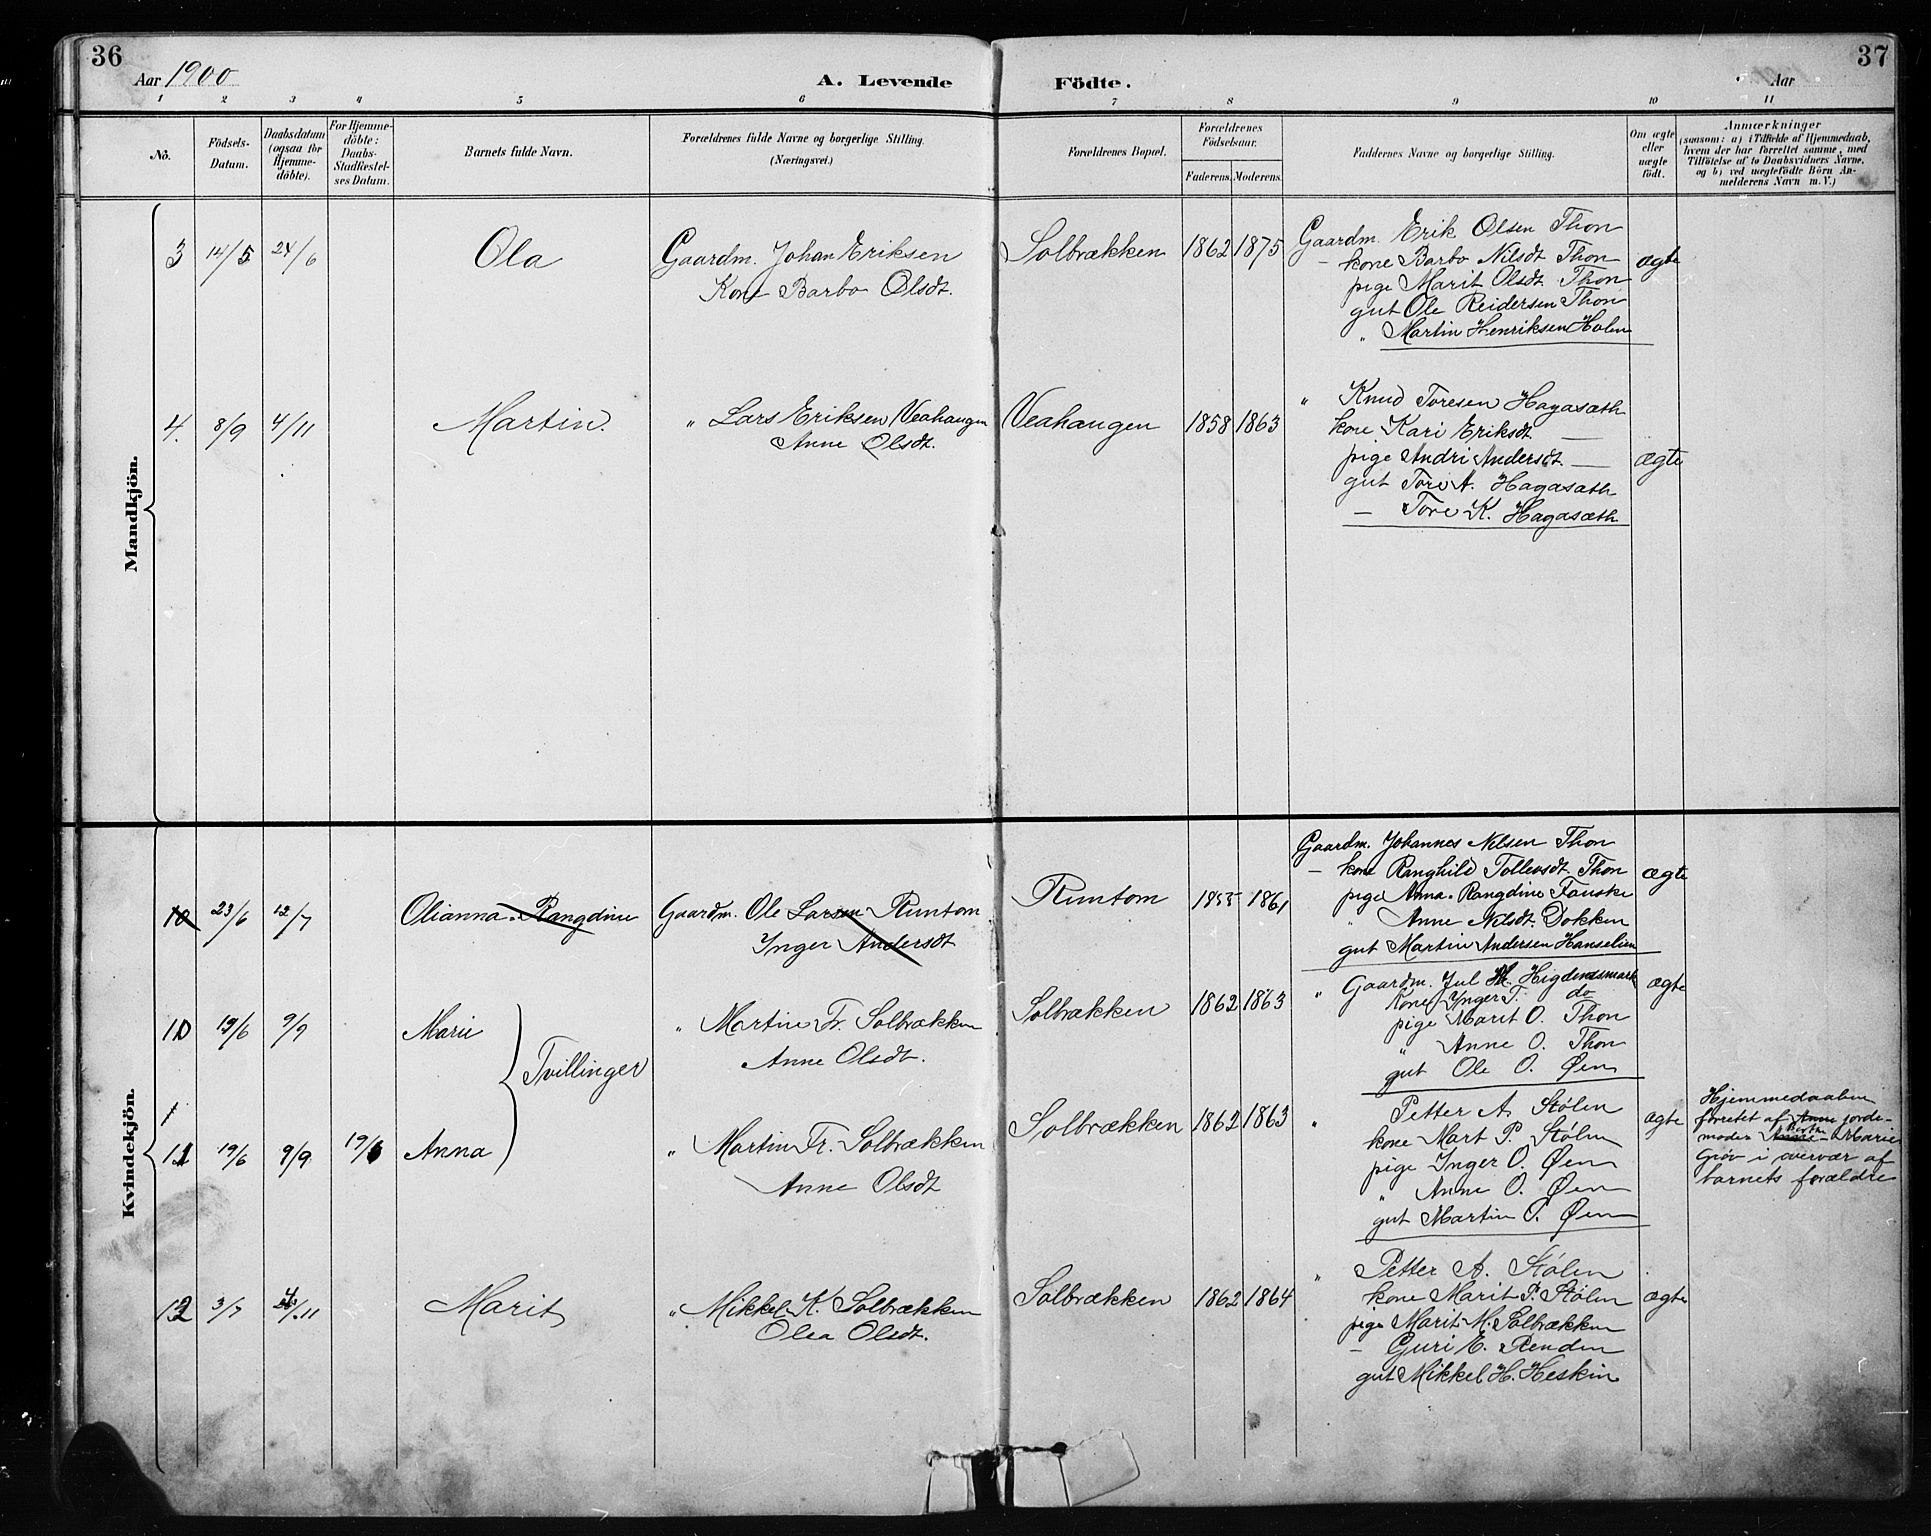 36
37
Aar 1900
A. Levende Födte.
Aar
1 2 3 4 5 6 7 8 9 10 11
No.
Födsels-Datum.
Daabsdatum (ogsaa for Hjemme-döbte).
For Hjemme-döbte: Daabs-Stadfæstel-ses Datum.
Barnets fulde Navn.
Forældrenes fulde Navne og borgerlige Stilling. (Næringsvei.)
Forældrenes Bopæl.
Forældrenes Födselsaar.
Faderens. Moderens.
Faddernes Navne og borgerlige Stilling.
Om ægte eller uægte födt.
Anmærkninger
(saasom: a) i Tilfælde af Hjemmedaab,
hvem der har forrettet samme, med
Tilföielse af to Daabsvidners Navne,
og b) ved uægtefödte Börn An-
melderens Navn m. V.)
Mandkjön.
3 14/5 24/6 Ola
Gaardm. Johan Eriksen
Kone Barbo Olsdt.
Solbrækken 1862 1875
Gaardm. Erik Olsen Thon
— kone Barbo Nilsdt Thon
pige Marit Olsdt Thon
gut Ole Reidersen Thon
" Martin Henriksen Holm
ægte
4. 8/9 4/11 Martin.
" Lars Eriksen Veahaugen
Anne Olsdt.
Veahaugen 1858 1863
" Knud Toresen Hagasæth
kone Kari Eriksdt —
pige Andri Andersdt —
gut Tore A. Hagasæth
— Tore K. Hagasæth
ægte
Kvindekjön.
10 23/6 12/7 Olianna Rangdine
Gaardm. Ole Larsen Runtom
Inger Andersdt
Runtom 1855 1861
Gaardm. Johannes Nilsen Thon
— kone Ranghild Tollevsdt Thon
pige Anna Rangdine Fauske
" Anne Nilsdt. Dokken
gut Martin Andersen Hanselien
ægte
10 19/6 9/9 Marie
Tvillinger
" Martin Fr. Solbrækken
Anne Olsdt.
Solbrækken 1862 1863
" Gaardm. Jul H. Høgdensmark
Kone Inger T. do
pige Marit O. Thon
" Anne O. Thon
gut Ole O. Øen
ægte
11 19/6 9/9 19/6 Anna
" Martin Fr. Solbrækken
Anne Olsdt
Solbrækken 1862 1863
" Petter A. Stølen
kone Marit P. Stølen
pige Inger O. Øen
" Anne O. Øen
gut Martin P. Øen
ægte
Hjemmedaaben
forretet af Anne jorde-
moder Berte Marie
Grøv i overvær af
barnets forældre
12 3/7 4/11 Marit
" Mikkel K. Solbrækken
Olea Olsdt.
Solbrækken 1862 1864
" Petter A. Stølen
kone Marit P. Stølen
pige Marit M. Solbrækken
— Guri E. Renden
gut Mikkel H. Heskin
ægte